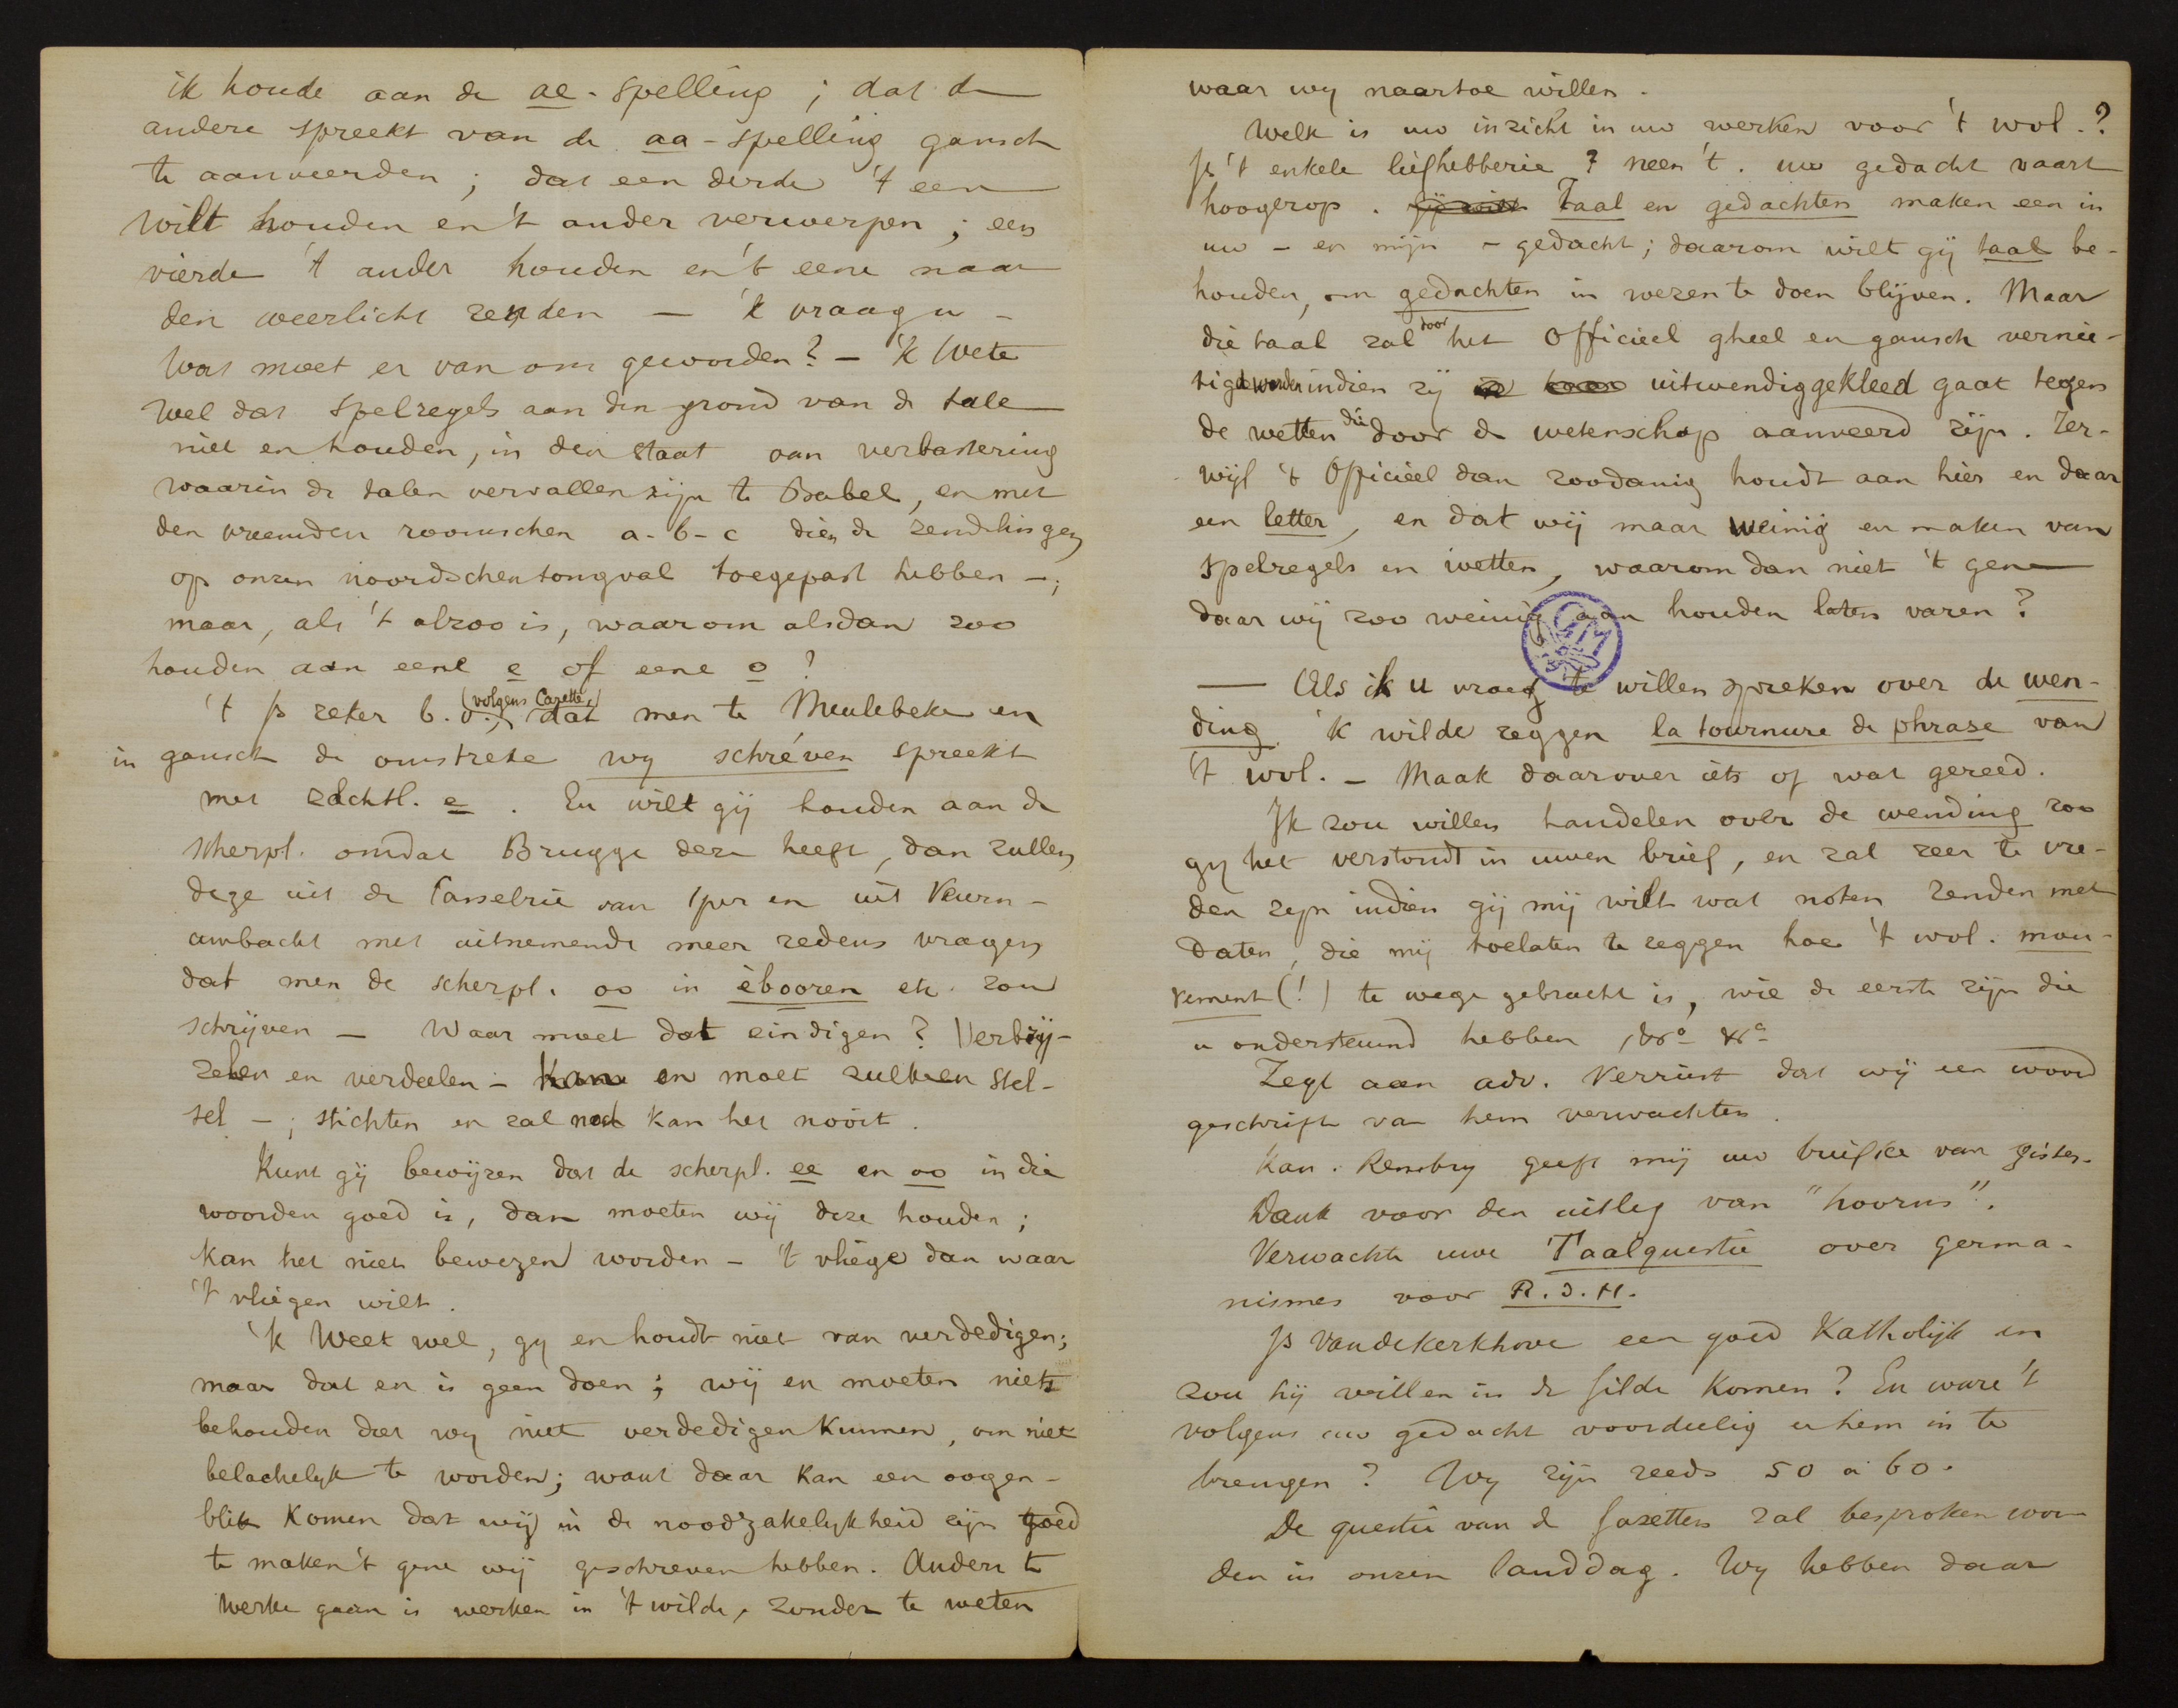 ik houde aan de ae-spelling ; dat de
andere spreekt van de aa-spelling gansch
te aanveerden ; dat een derde 't een
wilt houden en 't ander verwerpen ; een
vierde 't ander houden en 't eene naar
den weerlicht zenden — 'k vraag u –
Wat moet er van ons geworden ? – 'k Wete
wel dat spelregels aan den grond van de tale
niet en houden, in den staat van verbastering
waarin de talen vervallen zijn te Babel, en met
den vreemden roomschen a-b-c dien de zendelingen
op onzen noordschen tongval toegepast hebben –;
maar, als 't alzoo is, waarom alsdan zoo
houden aan eene e of eene o ?
't Is zeker b.v., (volgens Cazette,) dat men te Meulebeke en
in gansch de omstreke wy schréven spreekt
met zachtl. e . En wilt gij houden aan de
scherpl. omdat Brugge deze heeft, dan zullen
deze uit de Casselrie van Iper en uit Veurn-
ambacht met uitnemende meer redens vragen
dat men de scherpl. oo in èbooren etc. zou
schrijven — Waar moet dat eindigen ? Verbrij-
zelen en verdeelen – kan en moet zulk een stel-
sel – ; stichten en zal noch kan het nooit.
Kunt gij bewijzen dat de scherpl. ee en oo in die
woorden goed is, dan moeten wij deze houden ;
kan het niet bewezen worden – 't vliege dan waar
't vliegen wilt.
'k Weet wel, gy en houdt niet van verdedigen ;
maar dat en is geen doen ; wij en moeten niets
behouden dat wy niet verdedigen kunnen, om niet
belachelyk te worden ; want daar kan een oogen-
blik komen dat wij in de noodzakelykheid zijn goed
te maken 't gene wij geschreven hebben. Anders te
werke gaan is werken in 't wilde, zonder te weten
waar wy naartoe willen.
Welk is uw inzicht in uw werken voor 't wvl. ?
Is 't enkele liefhebberie ? neen 't. uw gedacht vaart
hoogerop. Gij wilt Taal en gedachten maken een in
uw – en mijn – gedacht ; daarom wilt gij taal be-
houden, om gedachten in wezen te doen blijven. Maar
die taal zal door het Officieel gheel en gansch vernie-
tigd worden indien zij uitwendig gekleed gaat tegen
de wetten die door de wetenschap aanveerd zijn. Ter-
wijl 't Officieel dan zoodanig houdt aan hier en daar
een letter, en dat wij maar weinig en maken van
spelregels en wetten, waarom dan niet 't gene
daar wij zoo weinig aan houden laten varen ?
— Als ik u vraeg te willen spreken over de wen-
ding 'k wilde zeggen la tournure de phrase van
't wvl. – Maak daarover iets of wat gereed.
Ik zou willen handelen over de wending zoo
gy het verstondt in uwen brief, en zal zeer te vre-
den zijn indien gij mij wilt wat noten zenden met
daten, die mij toelaten te zeggen hoe 't wvl. mou-
vement (!) te wege gebracht is, wie de eerste zijn die
u ondersteund hebben &ca &ca
Zegt aan adv. Verriest dat wij een woord
geschrift van hem verwachten.
Kan. Rembry geeft mij uw briefke van gister.
Dank voor den uitleg van "hoorns".
Verwachte uwe Taalquestie over germa-
nismes voor R.d.H.
Is Vandekerkhove een goed Katholijk en
zou hij willen in de Gilde komen ? En ware 't
volgens uw gedacht voordeelig u hem in te
brengen ? Wy zijn reeds 50 à 60.
De questie van de Gazetten zal besproken wor-
den in onzen landdag. Wy hebben daar
GM